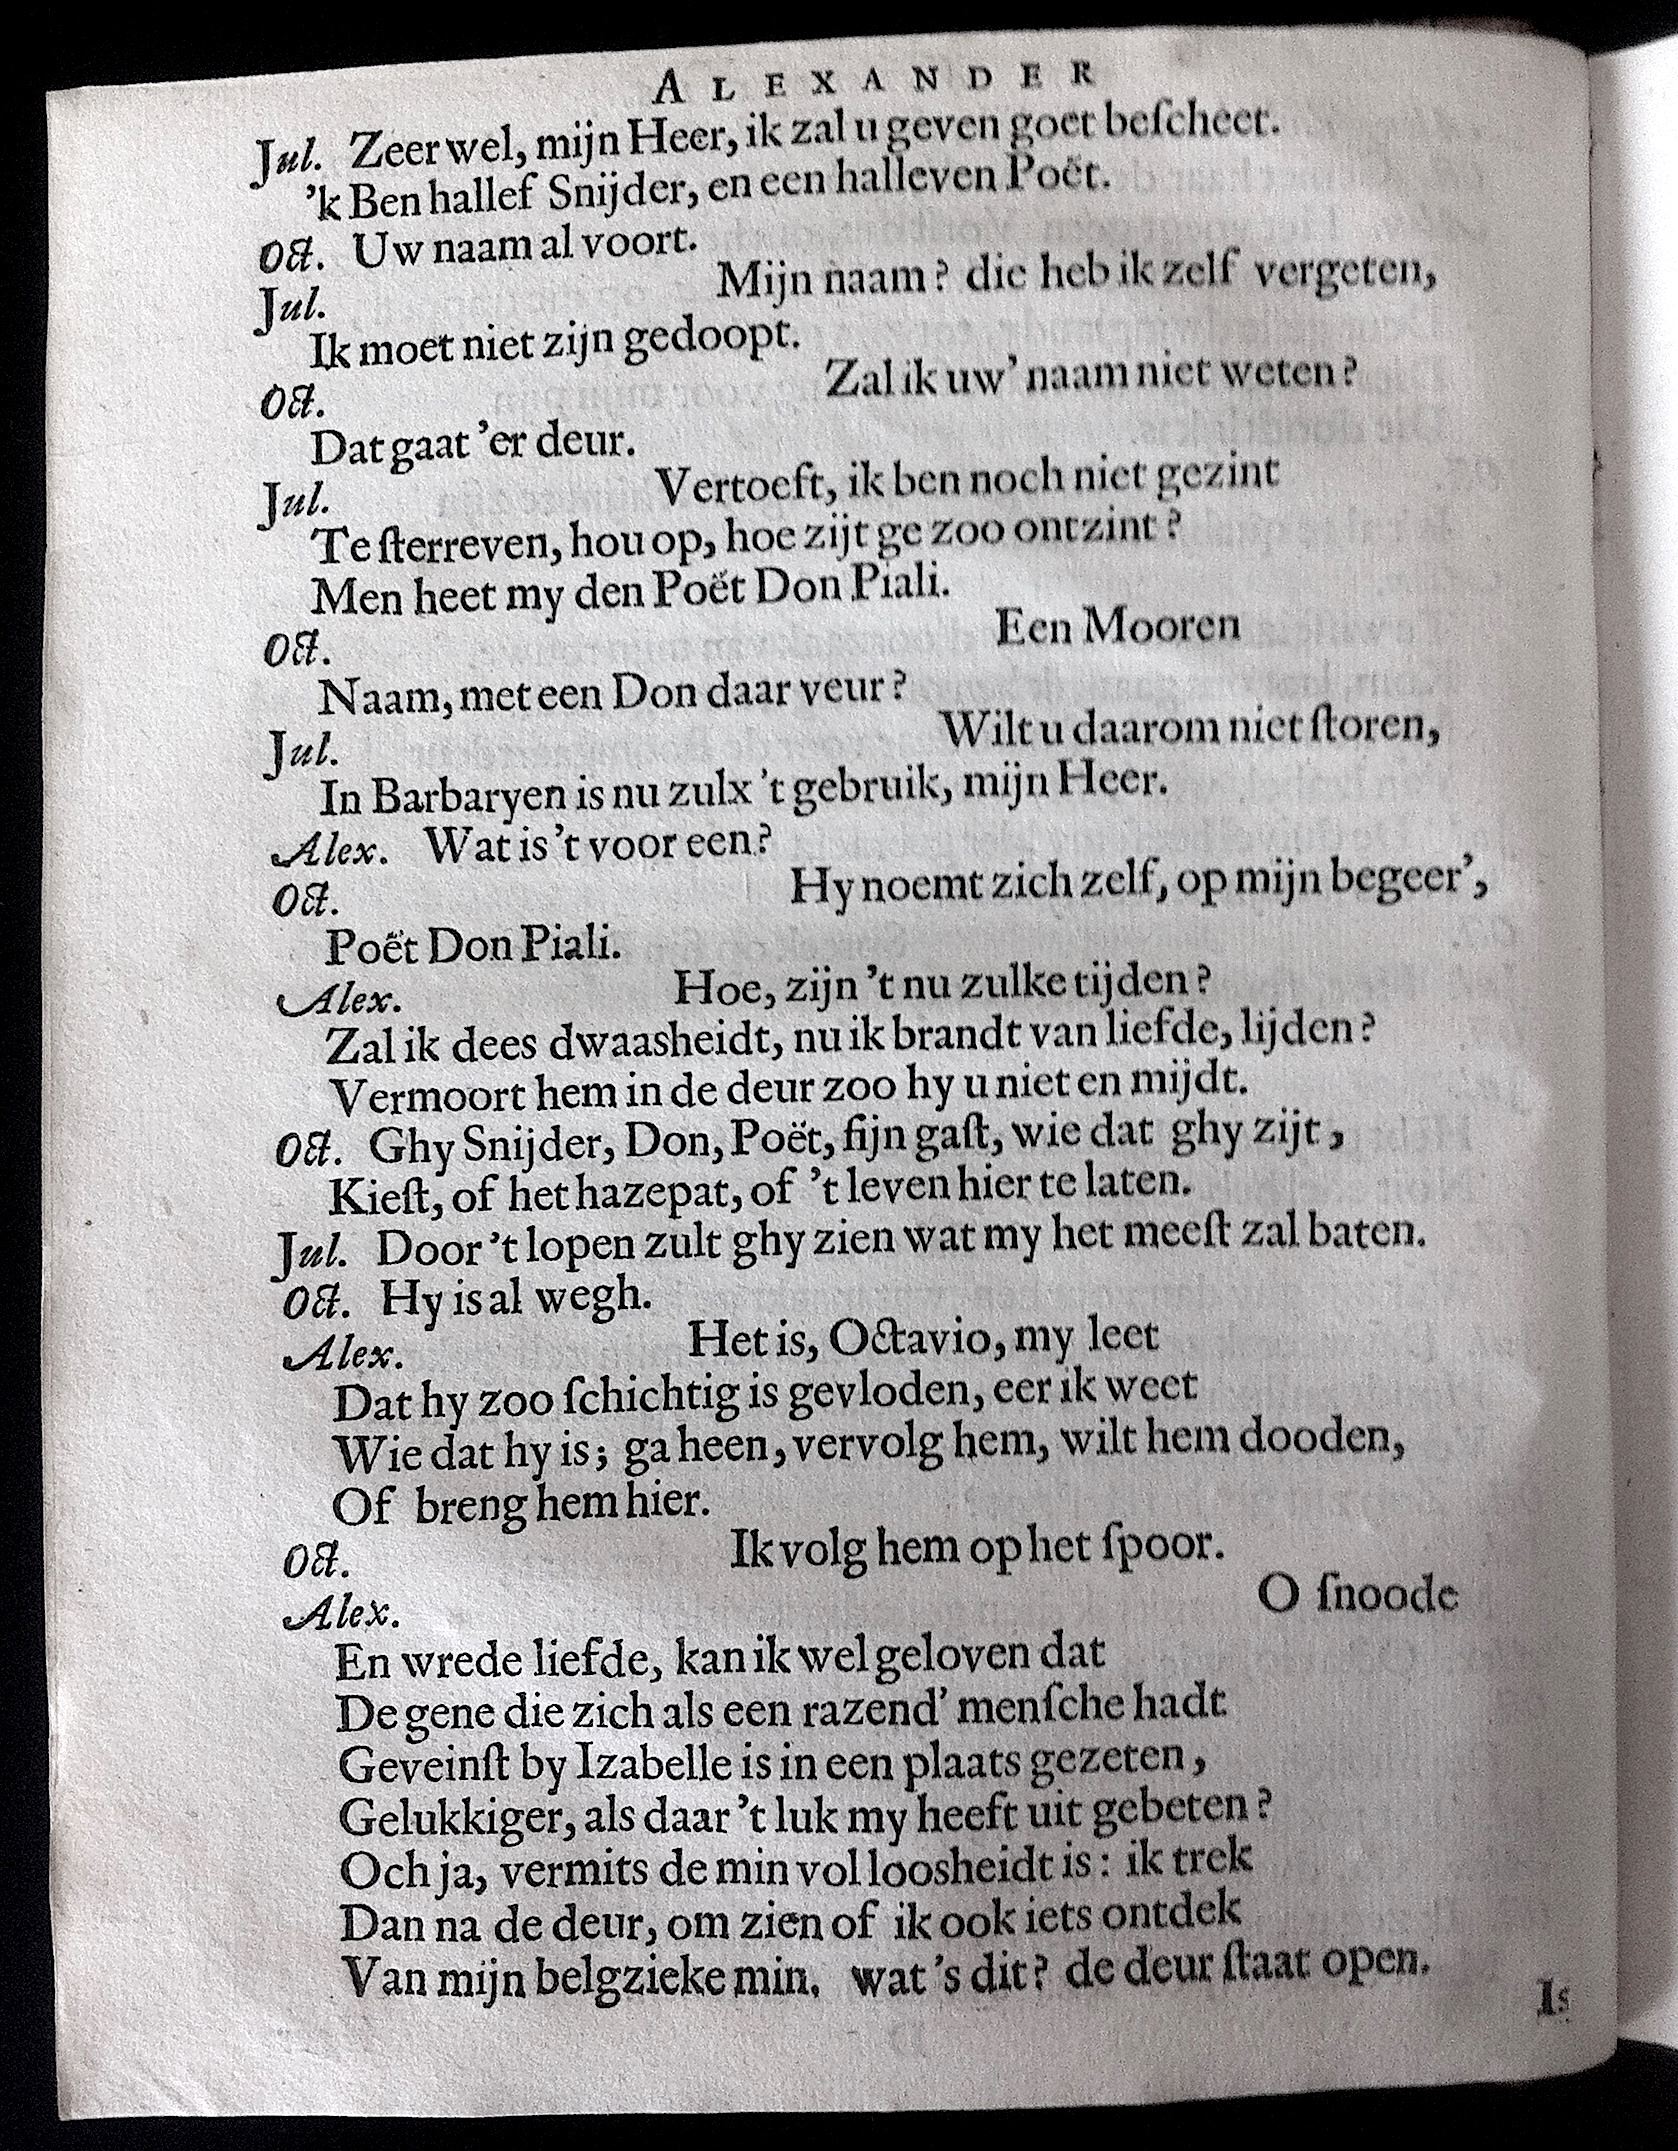 ALEXANDER
Jul. Zeer wel, mijn Heer, ik zal u geven goet beſcheet.
'k Ben hallef Snijder, en een halleven Poët.
Oct. Uw naam al voort.
Jul. Mijn naam? die heb ik zelf vergeten,
Ik moet niet zijn gedoopt.
Oct. Zal ik uw' naam niet weten?
Dat gaat 'er deur.
Jul. Vertoeft, ik ben noch niet gezint
Te ſterreven, hou op, hoe zijt ge zoo ontzint?
Men heet my den Poët Don Piali.
Oct. Een Mooren
Naam, met een Don daar veur?
Jul. Wilt u daarom niet ſtoren,
In Barbaryen is nu zulx 't gebruik, mijn Heer.
Alex. Wat is 't voor een?
Oct. Hy noemt zich zelf, op mijn begeer',
Poët Don Piali.
Alex. Hoe, zijn 't nu zulke tijden?
Zal ik dees dwaasheidt, nu ik brandt van liefde, lijden?
Vermoort hem in de deur zoo hy u niet en mijdt.
Oct. Ghy Snijder, Don, Poët, fijn gaſt, wie dat ghy zijt,
Kieſt, of het hazepat, of 't leven hier te laten.
Jul. Door 't lopen zult ghy zien wat my het meeſt zal baten.
Oct. Hy is al wegh.
Alex. Het is, Octavio, my leet
Dat hy zoo ſchichtig is gevloden, eer ik weet
Wie dat hy is; ga heen, vervolg hem, wilt hem dooden,
Of breng hem hier.
Oct. Ik volg hem op het ſpoor.
Alex. O ſnoode
En wrede liefde, kan ik wel geloven dat
De gene die zich als een razend' menſche hadt
Geveinſt by Izabelle is in een plaats gezeten,
Gelukkiger, als daar 't luk my heeft uit gebeten?
Och ja, vermits de min vol loosheidt is: ik trek
Dan na de deur, om zien of ik ook iets ontdek
Van mijn belgzieke min. wat 's dit? de deur ſtaat open.
Is